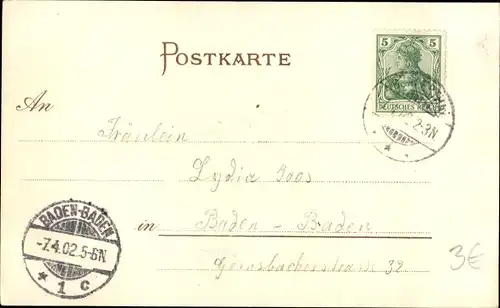 POSTKARTE
5 5
DEUTSCHES REICH
2-3N
An
Fräulein
Lydia Joos
BADEN-BADEN
-7.4.02.5-6N
* 1 c
in Baden-Baden
Gernsbacherstrasse 32
3€